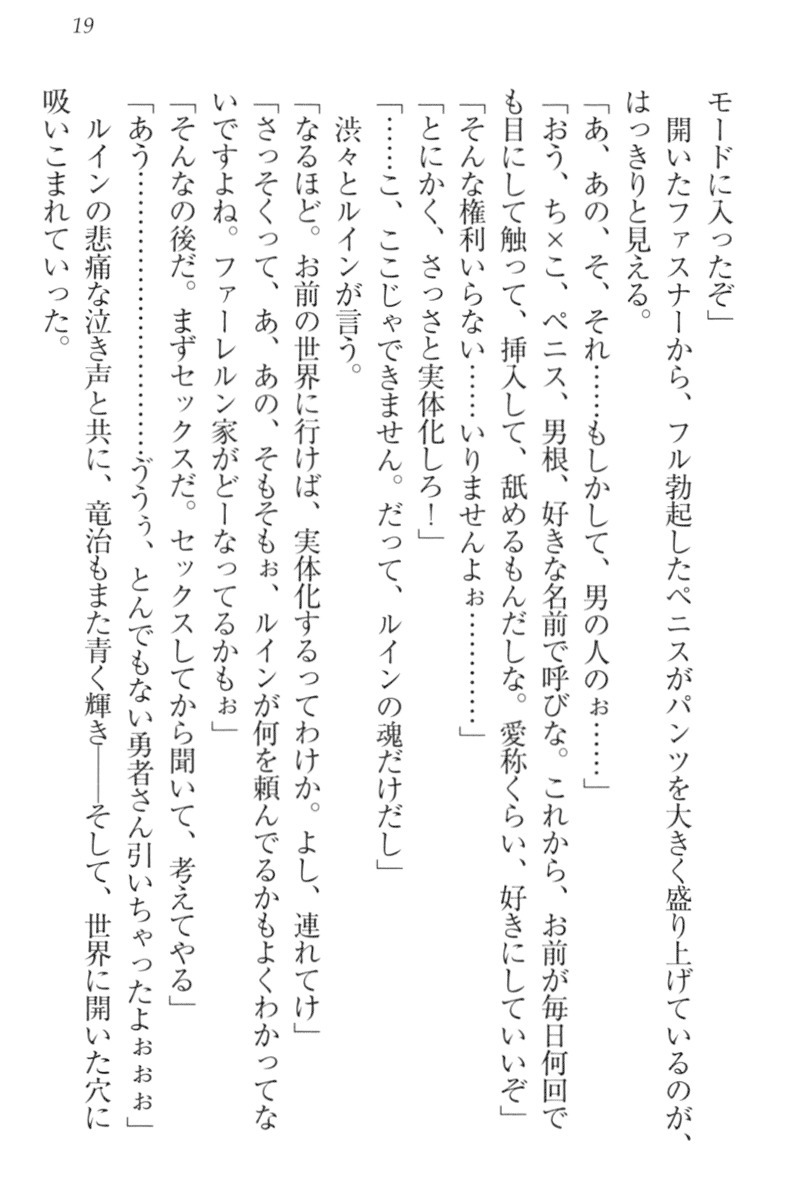 19
モードに入ったぞ」
　開いたファスナーから、フル勃起したペニスがパンツを大きく盛り上げているのが、
はっきりと見える。
「あ、あの、そ、それ……もしかして、男の人のぉ……」
「おう、ち×こ、ペニス、男根、好きな名前で呼びな。これから、お前が毎日何回で
も目にして触って、挿入して、舐めるもんだしな。愛称くらい、好きにしていいぞ」
「そんな権利いらない……いりませんよぉ…………」
「とにかく、さっさと実体化しろ！」
「……こ、ここじゃできません。だって、ルインの魂だけだし」
　渋々とルインが言う。
「なるほど。お前の世界に行けば、実体化するってわけか。よし、連れてけ」
「さっそくって、あ、あの、そもそもぉ、ルインが何を頼んでるかもよくわかってな
いですよね。ファーレルン家がどーなってるかもぉ」
「そんなの後だ。まずセックスだ。セックスしてから聞いて、考えてやる」
「あう……………………ううぅ、とんでもない勇者さん引いちゃったよぉぉぉ」
　ルインの悲痛な泣き声と共に、竜治もまた青く輝き――そして、世界に開いた穴に
吸いこまれていった。